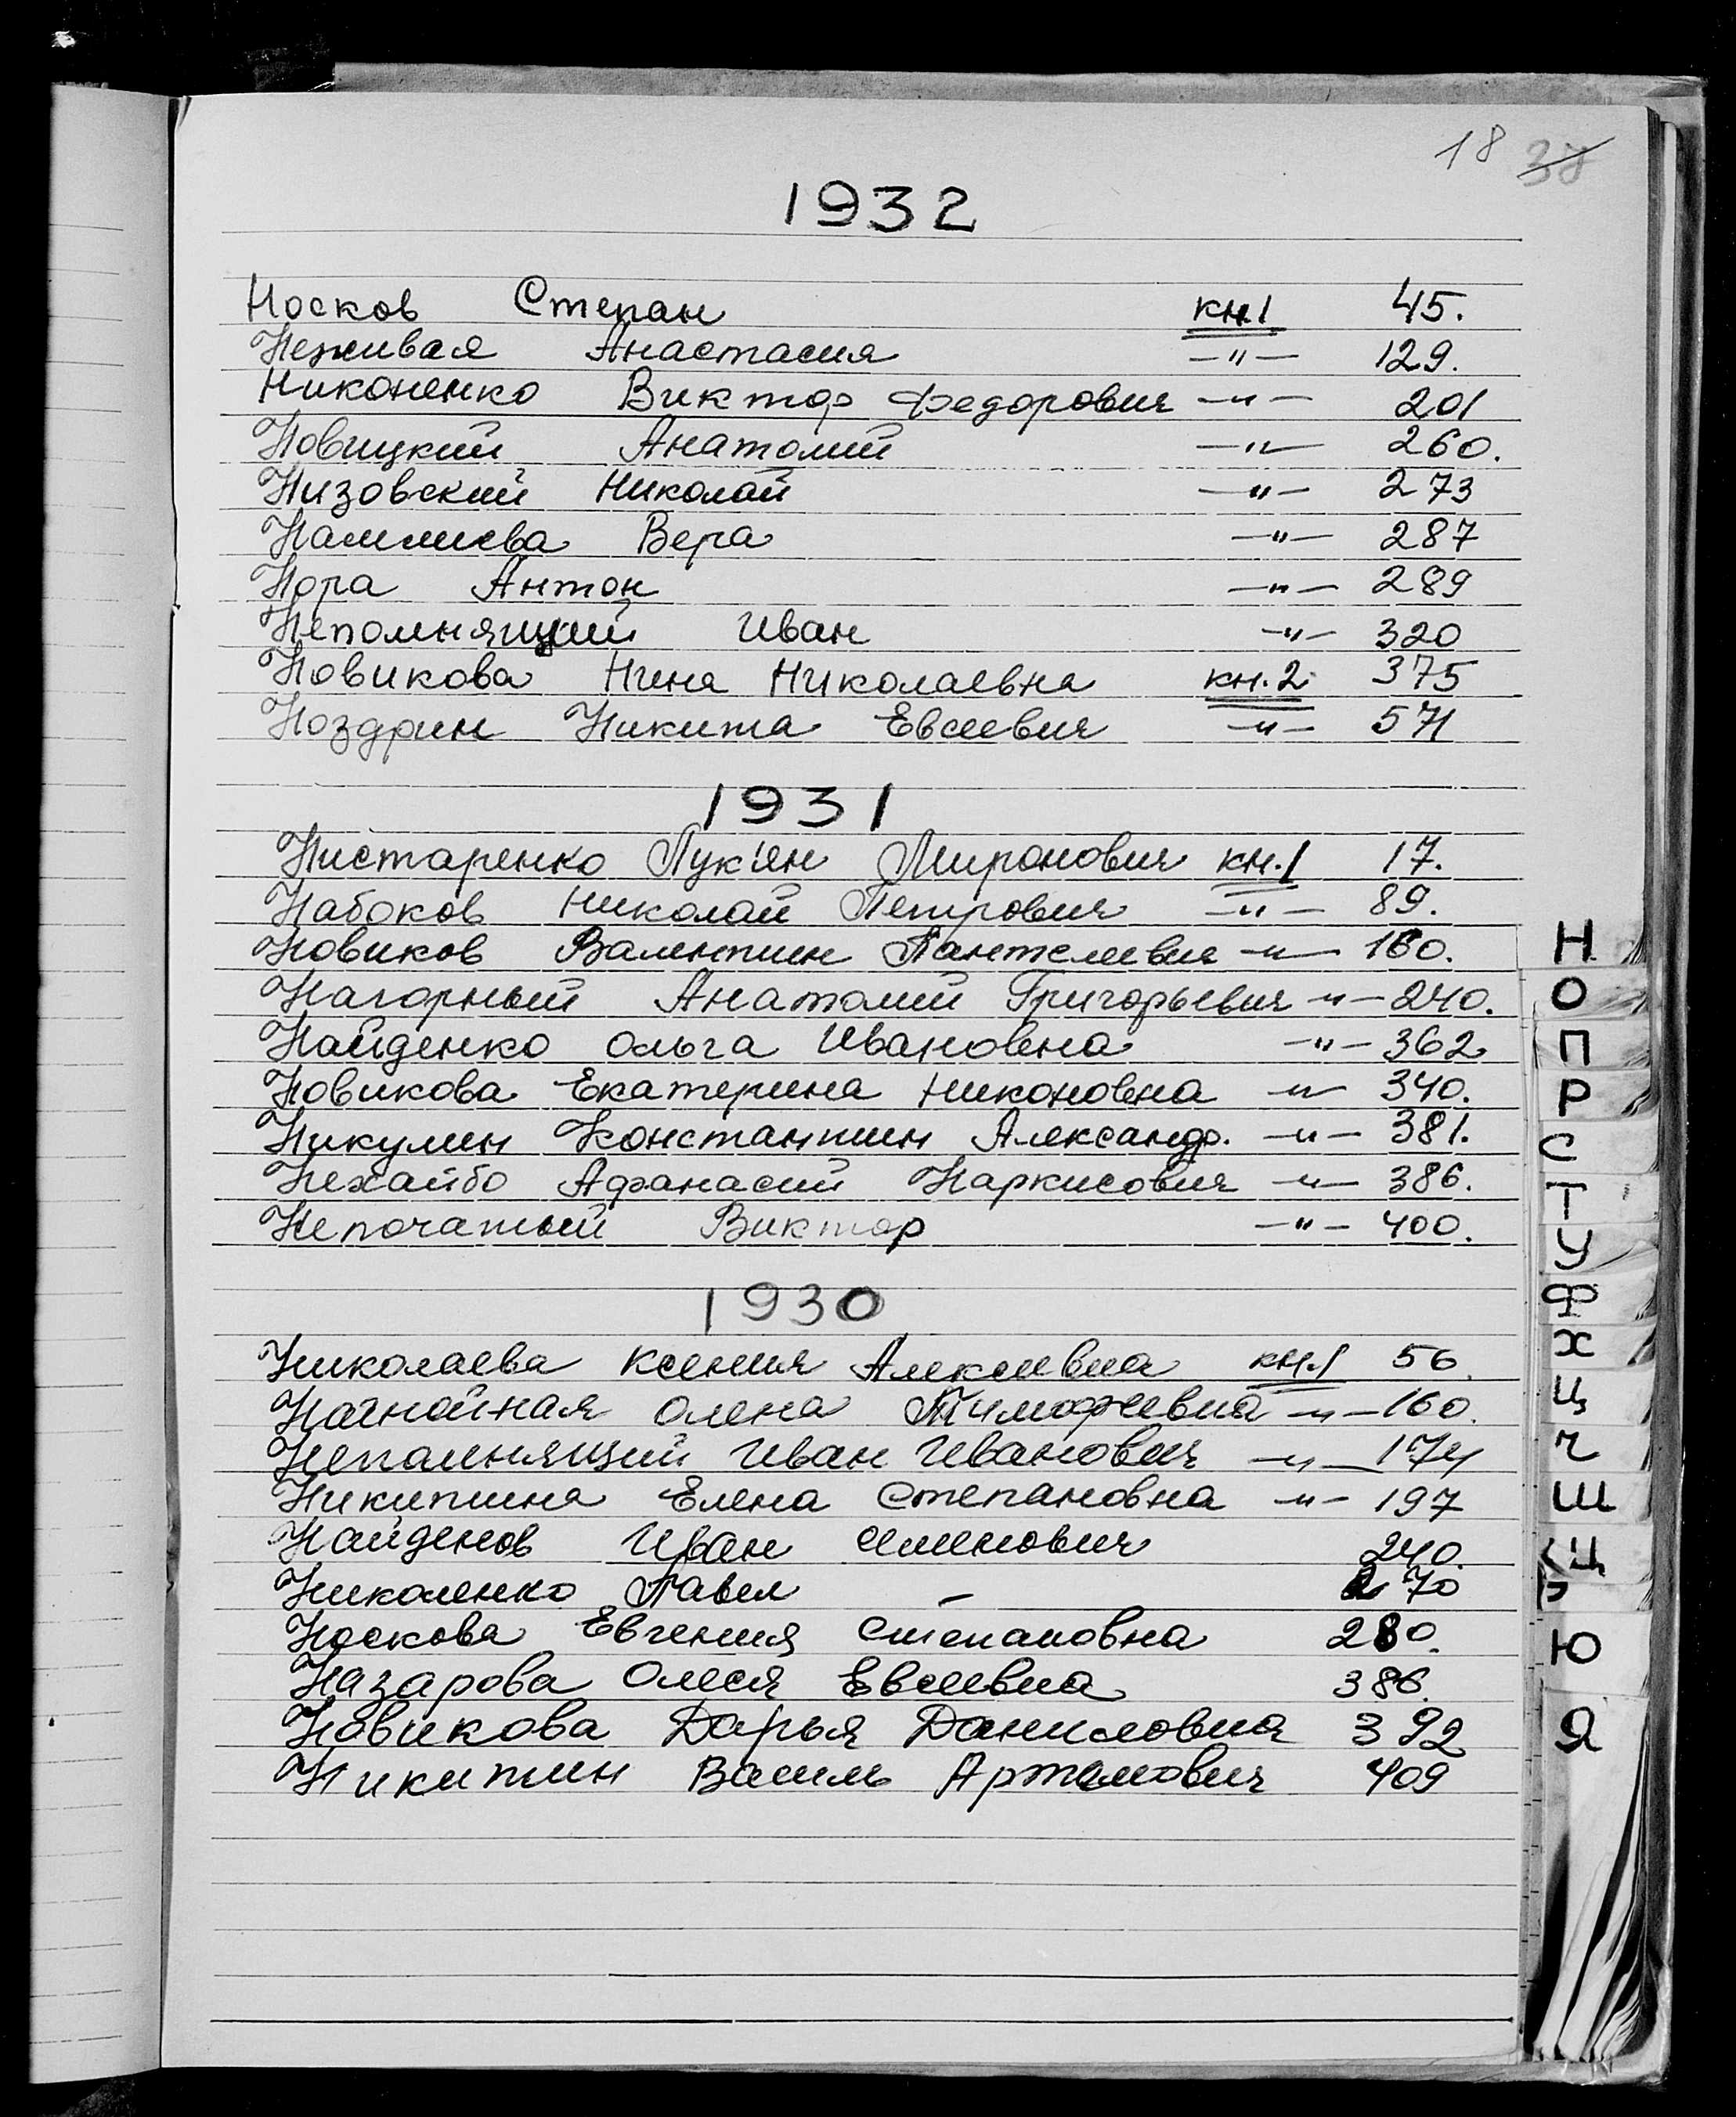 18 38
1932
Носков Степан кн.1 45.
Неживая Анастасия —"— 129.
Никоненко Виктор Федорович —"— 201
Новицкий Анатолий —"— 260.
Низовский Николай —"— 273
Вера —"— 287
Нора Антон —"— 289
Непомнящий Иван —"— 320
Новикова Нина Николаевна кн.2 375
Ноздрин Никита Евсеевич —"— 571
1931
Нистаренко Лук'ян Миронович кн.1 17.
Набоков Николай Петрович —"— 89.
Новиков Валентин Пантелеевич —"— 160.
Нагорный Анатолий Григорьевич —"— 240.
Найденко Ольга Ивановна —"— 362
Новикова Екатерина Никоновна —"— 340.
Никулин Константин Александр. —"— 381.
Нехайбо Афанасий Наркисович —"— 386.
Непочатый Виктор —"— 400.
1930
Николаева Ксения Алексеевна кн.1 56.
Олена Тимофеевна —"— 160.
Непомнящий Иван Иванович —"— 174
Никитина Елена Степановна —"— 197
Найденов Иван Семенович 240.
Николенко Павел — 270
Носкова Евгения Степановна 280.
Назарова Олеся Евсеевна 386.
Новикова Дарья Даниловна 392
Никитин Василь Артамович 409
Н
О
П
Р
С
Т
У
Ф
Х
Ц
Ч
Ш
Щ
Э
Ю
Я